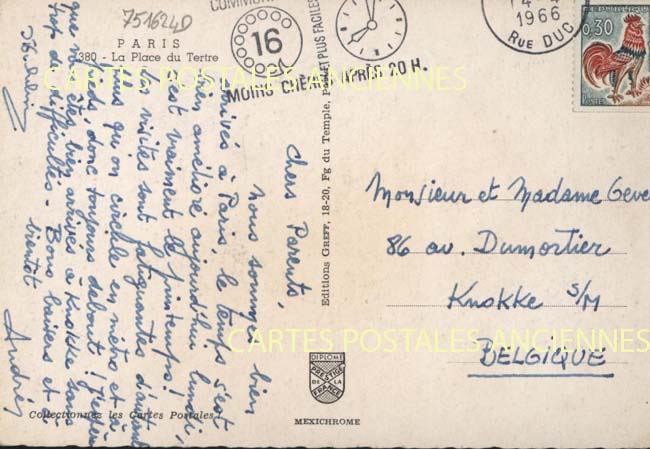 751624D
PARIS
380 - La Place du Tertre
COMMUNI
16
ET PLUS FACILES
MOINS CHÈRES APRÈS 20 H.
1966
RUE DUC
0,30
POSTES
CARTES POSTALES ANCIENNES
Chers Parents,
nous sommes bien
arrivés à Paris, le temps s'est
bien amélioré aujourd'hui lundi,
c'est vraiment le printemps!
Les visites sont fatigantes d'autant
plus qu'on circule en métro et à
pieds, donc toujours debout! J'espère
que vous êtes bien arrivés à Knokke sans
trop de difficultés - Bons baisers et à
bientôt
André
Editions GREFF, 18-20, Fg du Temple, Paris
Monsieur et Madame Geve
86 av. Dumortier
Knokke s/M
BELGIQUE
CARTES POSTALES ANCIENNES
DIPLOME
PRESTIGE
DE LA
FRANCE
Collectionnez les Cartes Postales!
MEXICHROME